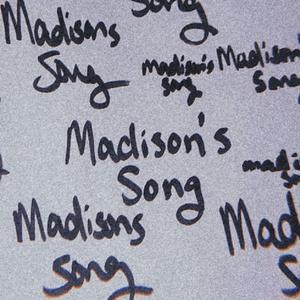 Song
Madisons
Song
madison's
song
Madison
Song
Madison's
Song
madi
so
Madisons
Song
Mad
S